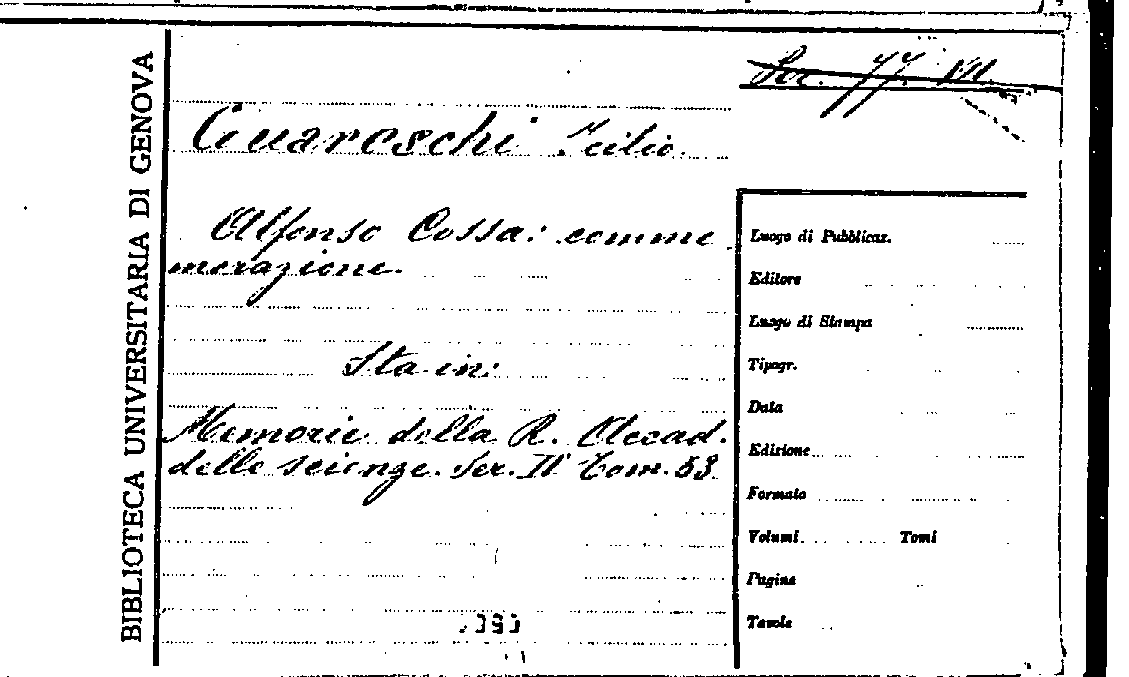 BIBLIOTECA UNIVERSITARIA DI GENOVA
Guareschi Icilio.
Alfonso Cossa: comme
morazione.
Sta in:
Memorie della R. Accad.
delle scienze. Ser. II Tom. 53.
Luogo di Pubblicaz.
Editore
Luogo di Stampa
Tipogr.
Data
Edizione
Formato
Volumi Tomi
Pagine
Tavole